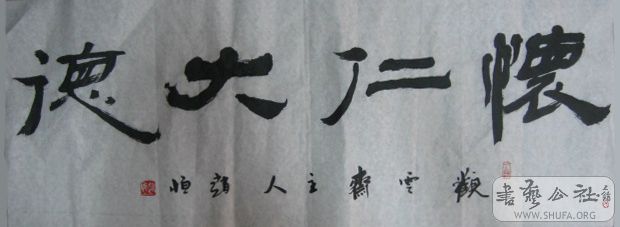 懷仁大德
觀雲齋主人恒
書藝公社
WWW.SHUFA.ORG